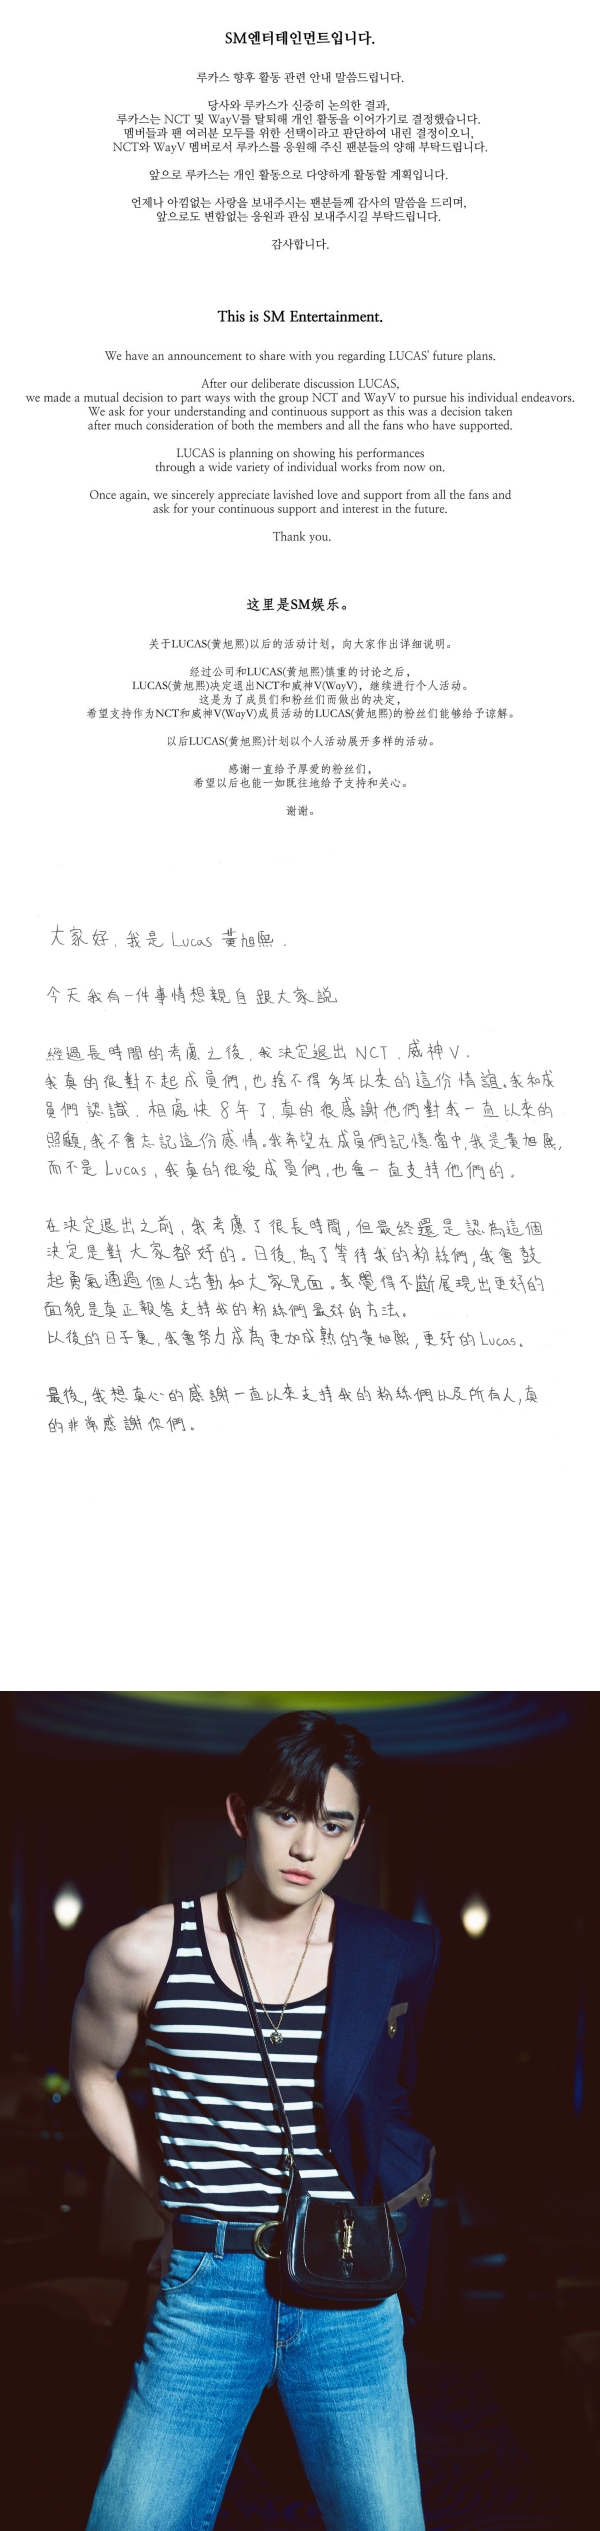 SM엔터테인먼트입니다.
루카스 향후 활동 관련 안내 말씀드립니다.
당사와 루카스가 신중히 논의한 결과,
루카스는 NCT 및 WayV를 탈퇴해 개인 활동을 이어가기로 결정했습니다.
멤버들과 팬 여러분 모두를 위한 선택이라고 판단하여 내린 결정이오니,
NCT와 WayV 멤버로서 루카스를 응원해 주신 팬분들의 양해 부탁드립니다.
앞으로 루카스는 개인 활동으로 다양하게 활동할 계획입니다.
언제나 아낌없는 사랑을 보내주시는 팬분들께 감사의 말씀을 드리며,
앞으로도 변함없는 응원과 관심 보내주시길 부탁드립니다.
감사합니다.
This is SM Entertainment.
We have an announcement to share with you regarding LUCAS' future plans.
After our deliberate discussion LUCAS,
we made a mutual decision to part ways with the group NCT and WayV to pursue his individual endeavors.
We ask for your understanding and continuous support as this was a decision taken
after much consideration of both the members and all the fans who have supported.
LUCAS is planning on showing his performances
through a wide variety of individual works from now on.
Once again, we sincerely appreciate lavished love and support from all the fans and
ask for your continuous support and interest in the future.
Thank you.
这里是SM娱乐。
关于LUCAS(黄旭熙)以后的活动计划，向大家作出详细说明。
经过公司和LUCAS(黄旭熙)慎重的讨论之后，
LUCAS(黄旭熙)决定退出NCT和威神V(WayV)，继续进行个人活动。
这是为了成员们和粉丝们而做出的决定，
希望支持作为NCT和威神V(WayV)成员活动的LUCAS(黄旭熙)的粉丝们能够给予谅解。
以后LUCAS(黄旭熙)计划以个人活动展开多样的活动。
感谢一直给予厚爱的粉丝们，
希望以后也能一如既往地给予支持和关心。
谢谢。
大家好，我是 Lucas 黃旭熙．
今天我有一件事情想親自跟大家説
經過長時間的考慮之後，我決定退出 NCT．威神 V．
我真的很對不起成員們，也捨不得多年以來的這份情誼。我和成
員們認識．相處快 8 年了，真的很感謝他們對我一直以來的
照顧，我不會忘記這份感情。我希望在成員們記憶當中，我是黃旭熙，
而不是 Lucas，我真的很愛成員們，也會一直支持他們的。
在決定退出之前，我考慮了很長時間，但最終還是認為這個
決定是對大家都好的。日後，為了等待我的粉絲們，我會鼓
起勇氣通過個人活動和大家見面。我覺得不斷展現出更好的
面貌是真正報答支持我的粉絲們最好的方法。
以後的日子裏，我會努力成為更加成熟的黃旭熙，更好的Lucas。
最後，我想真心的感謝一直以來支持我的粉絲們以及所有人，真
的非常感謝你們。